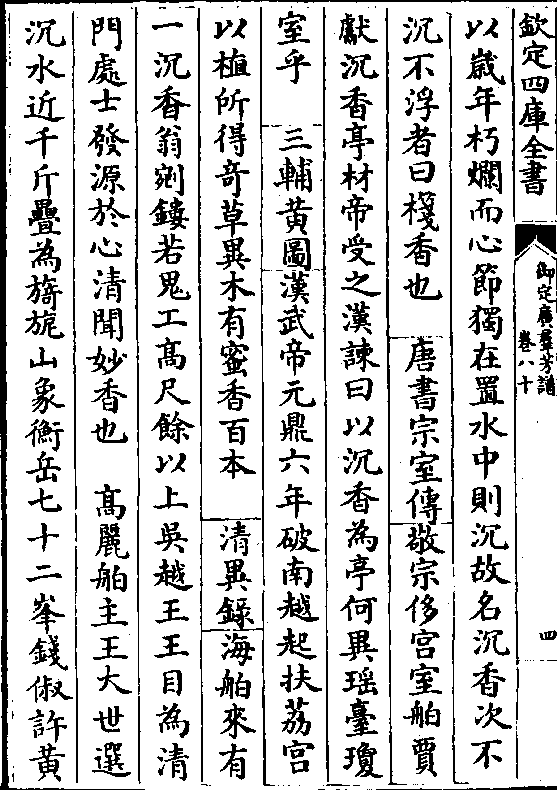 欽定四庫全書
御定廣羣芳譜
卷八十
四
以嵗年朽爛而心節獨在置水中則沉故名沉香次不
沉不浮者曰棧香也　唐書宗室傳敬宗侈宫室舶賈
獻沉香亭材帝受之漢諫曰以沉香為亭何異瑶臺瓊
室乎　三輔黄圖漢武帝元鼎六年破南越起扶荔宫
以植所得奇草異木有蜜香百本　清異録海舶來有
一沉香翁剜鏤若鬼工髙尺餘以上吳越王王目為清
門處士發源於心清聞妙香也　髙麗舶主王大世選
沉水近千斤疊為旖旎山象衡岳七十二峯錢俶許黄